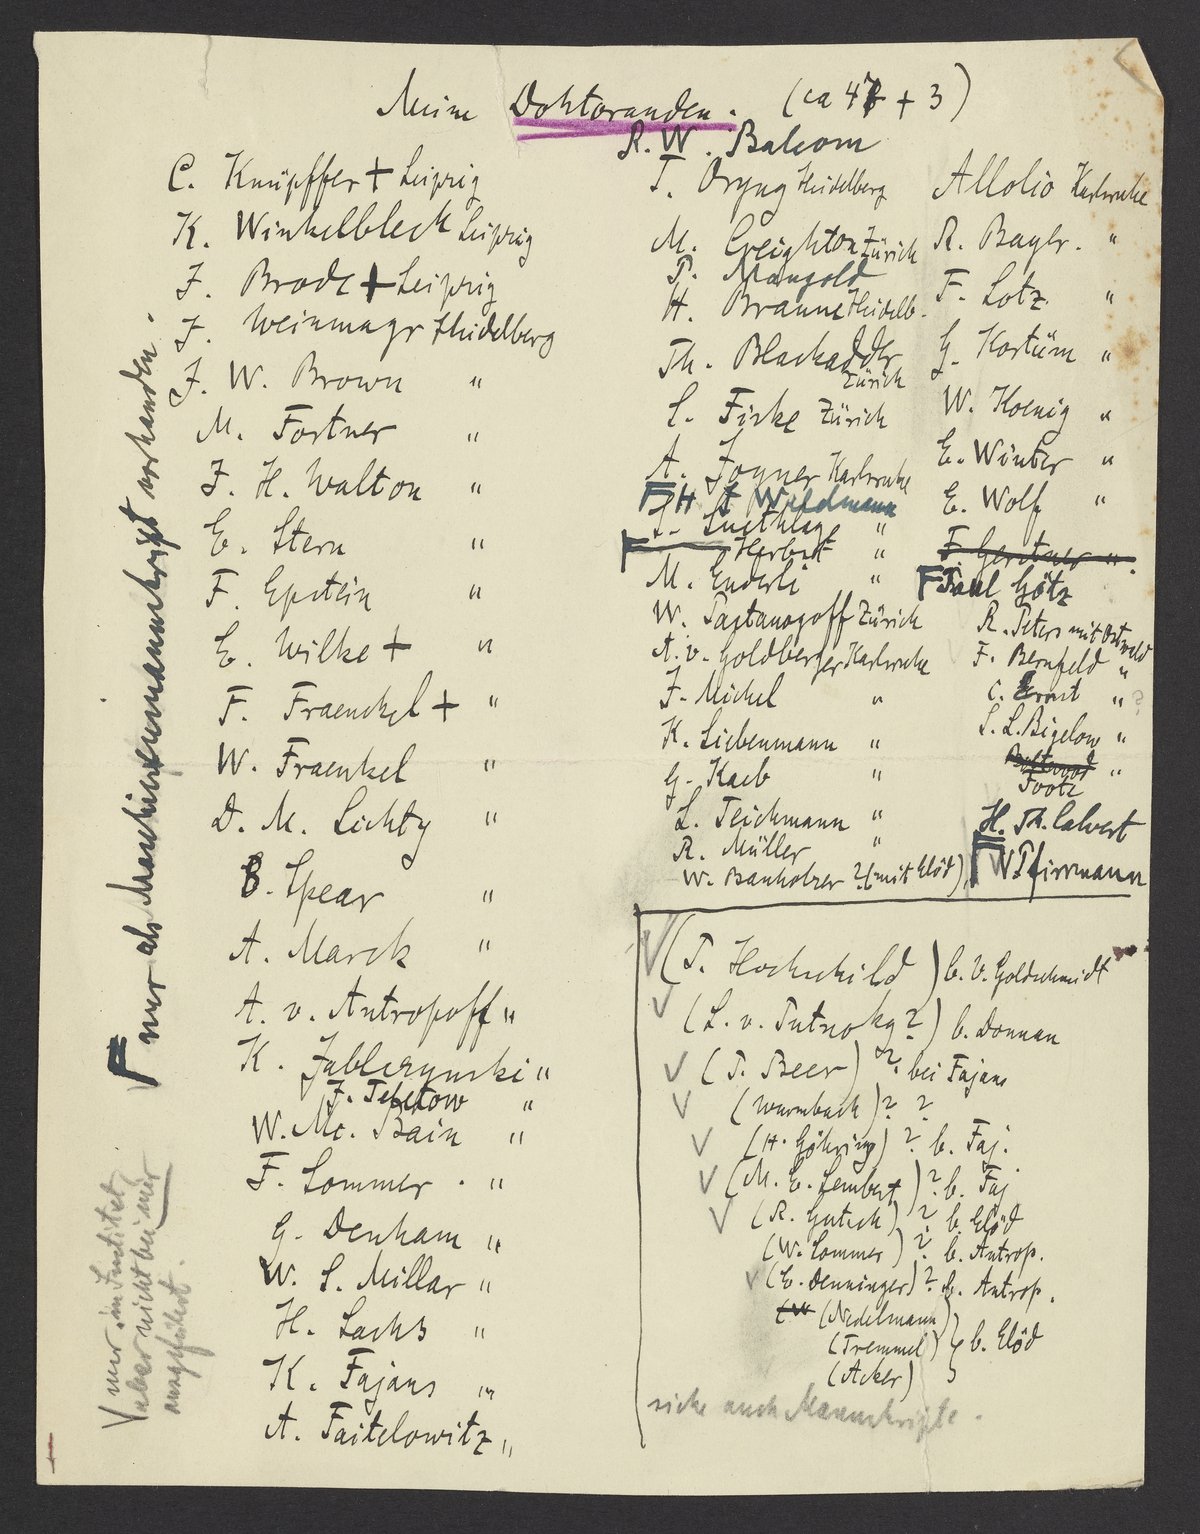 Meine Doktoranden. (ca 47 + 3)
C. Knüpffer + Leipzig
K. Winkelblech Leipzig
J. Brode + Leipzig
J. Weinmayr Heidelberg
J. W. Brown "
M. Fortner "
J. H. Walton "
E. Stern "
F. Epstein "
E. Wilke + "
F. Fraenckel + "
W. Fraenkel "
D. M. Lichty "
B. Spear "
A. Marck "
A. v. Antropoff "
K. Jablczynski "
J. Teletow "
W. Mc. Bain "
F. Sommer . "
G. Denham "
W. S. Millar "
H. Sachs "
K. Fajans "
A. Faitelowitz "
R. W. Balcom
T. Oryng Heidelberg
M. Creighton Zürich
P. Mangold
H. Braune Heidelb.
Th. Blackadder
Zürich
C. Fiske Zürich
A. Joyner Karlsruhe
H J Waldmann
Luethlage "
Herbst "
M. Enderli "
W. Pastanogoff Zürich
A. v. Goldberger Karlsruhe
J. Michel "
K. Siebenmann "
G. Kaeb "
L. Teichmann "
R. Müller "
W. Banholzer ? (mit Elöd)
Allolio Karlsruhe
R. Bayer. "
F. Lotz "
G. Kortüm "
W. Koenig "
E. Winter "
E. Wolf "
F. Gerstner "
Paul Götz
R. Peters mit Ostwald
F. Bernfeld "
C. Ernst " ?
S. L. Bigelow "
Foote "
H. Th. Calvert
W Pfirrmann
V (P. Hochschild) b. V. Goldschmidt
V (L. v. Putnoky ?) b. Donnan
V (P. Beer) ? bei Fajans
V (Wurmbach) ? ?
V (H. Göhring) ? b. Faj.
V (M. E. Lembert) ? b. Faj
V (R. Gutsch) ? b. Elöd
(W. Sommer) ? b. Antrop.
V (E. Denninger) ? b. Antrop.
(W (Nedelmann)
(Tremmel) } b. Elöd
(Acker)
siehe auch Manuskripte.
F nur als Maschinenmanuskript vorhanden.
V nur im Institut,
aber nicht bei mir
ausgeführt.